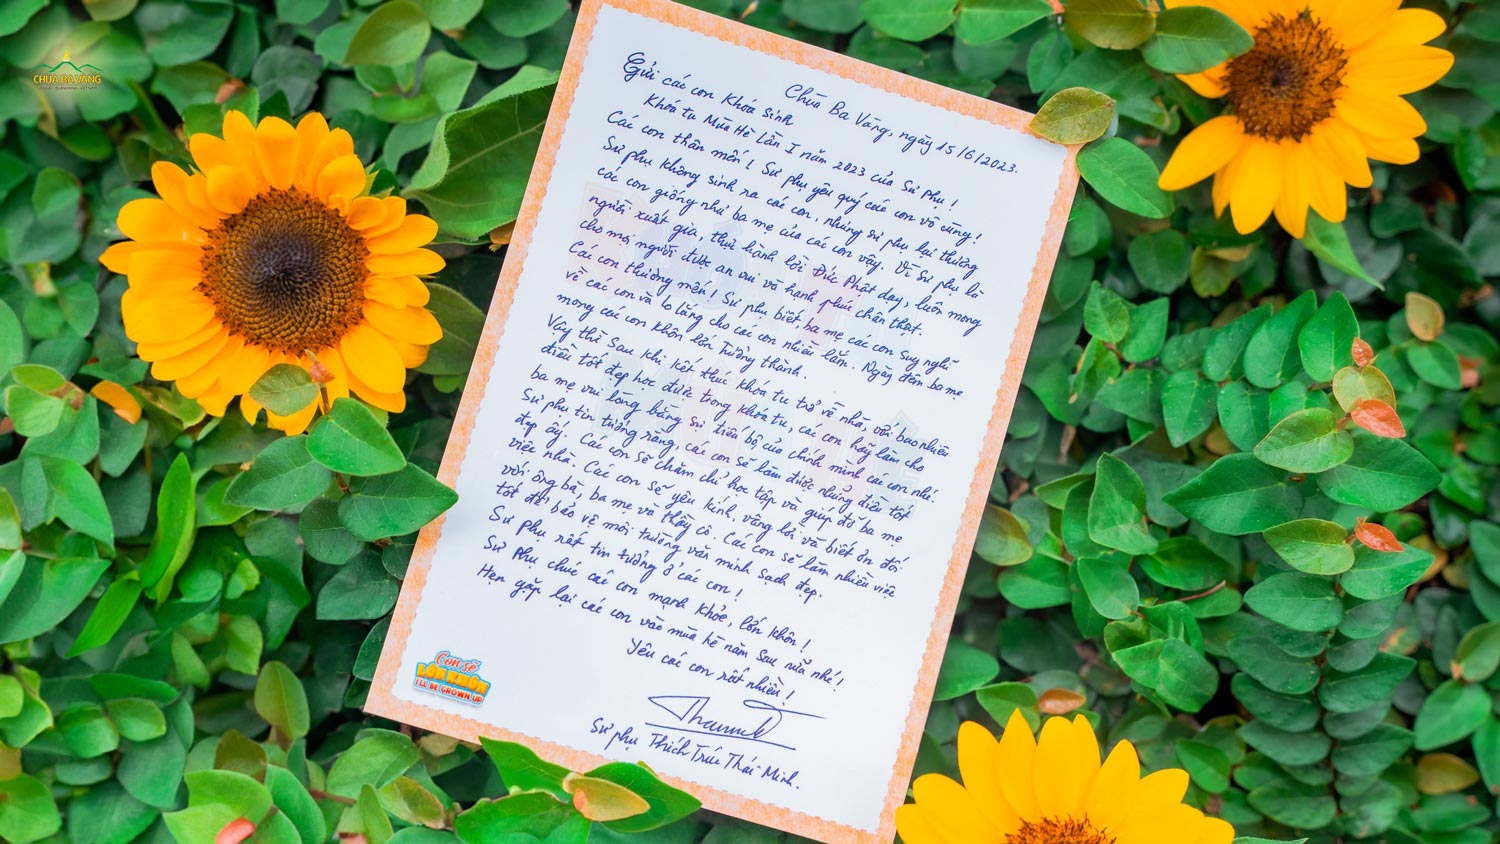 CHÙA BA VÀNG
Chùa Ba Vàng, ngày 15/6/2023.
Gửi các con Khóa Sinh
Khóa tu Mùa Hè Lần I năm 2023 của Sư Phụ!
Các con thân mến! Sư phụ yêu quý các con vô cùng!
Sư phụ không sinh ra các con, nhưng sư phụ lại thương
các con giống như ba mẹ của các con vậy. Vì Sư phụ là
người xuất gia, thực hành lời Đức Phật dạy, luôn mong
cho mọi người được an vui và hạnh phúc chân thật.
Các con thương mến! Sư phụ biết ba mẹ các con suy nghĩ
về các con và lo lắng cho các con nhiều lắm. Ngày đêm ba mẹ
mong các con khôn lớn trưởng thành.
Vậy thì sau khi kết thúc khóa tu trở về nhà, với bao nhiêu
điều tốt đẹp học được trong khóa tu, các con hãy làm cho
ba mẹ vui lòng bằng sự tiến bộ của chính mình các con nhé.
Sư phụ tin tưởng rằng, các con sẽ làm được những điều tốt
đẹp ấy. Các con sẽ chăm chỉ học tập và giúp đỡ ba mẹ
việc nhà. Các con sẽ yêu kính, vâng lời và biết ơn đối
với ông bà, ba mẹ và thầy cô. Các con sẽ làm nhiều việc
tốt để bảo vệ môi trường văn minh sạch đẹp.
Sư phụ rất tin tưởng ở các con!
Sư phụ chúc các con mạnh khỏe, lớn khôn!
Hẹn gặp lại các con vào mùa hè năm sau nữa nhé!
Yêu các con rất nhiều!
Sư phụ Thích Trúc Thái Minh.
Con sẽ
LỚN KHÔN
I'LL BE GROWN UP